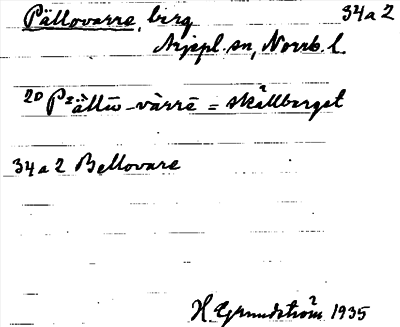 Pällovarre, berg 34a2
Arjepl. sn, Norrb. l.
20 Pällū-vàrrē = skållberget
34a2 Bellovare
H. Grundström 1935